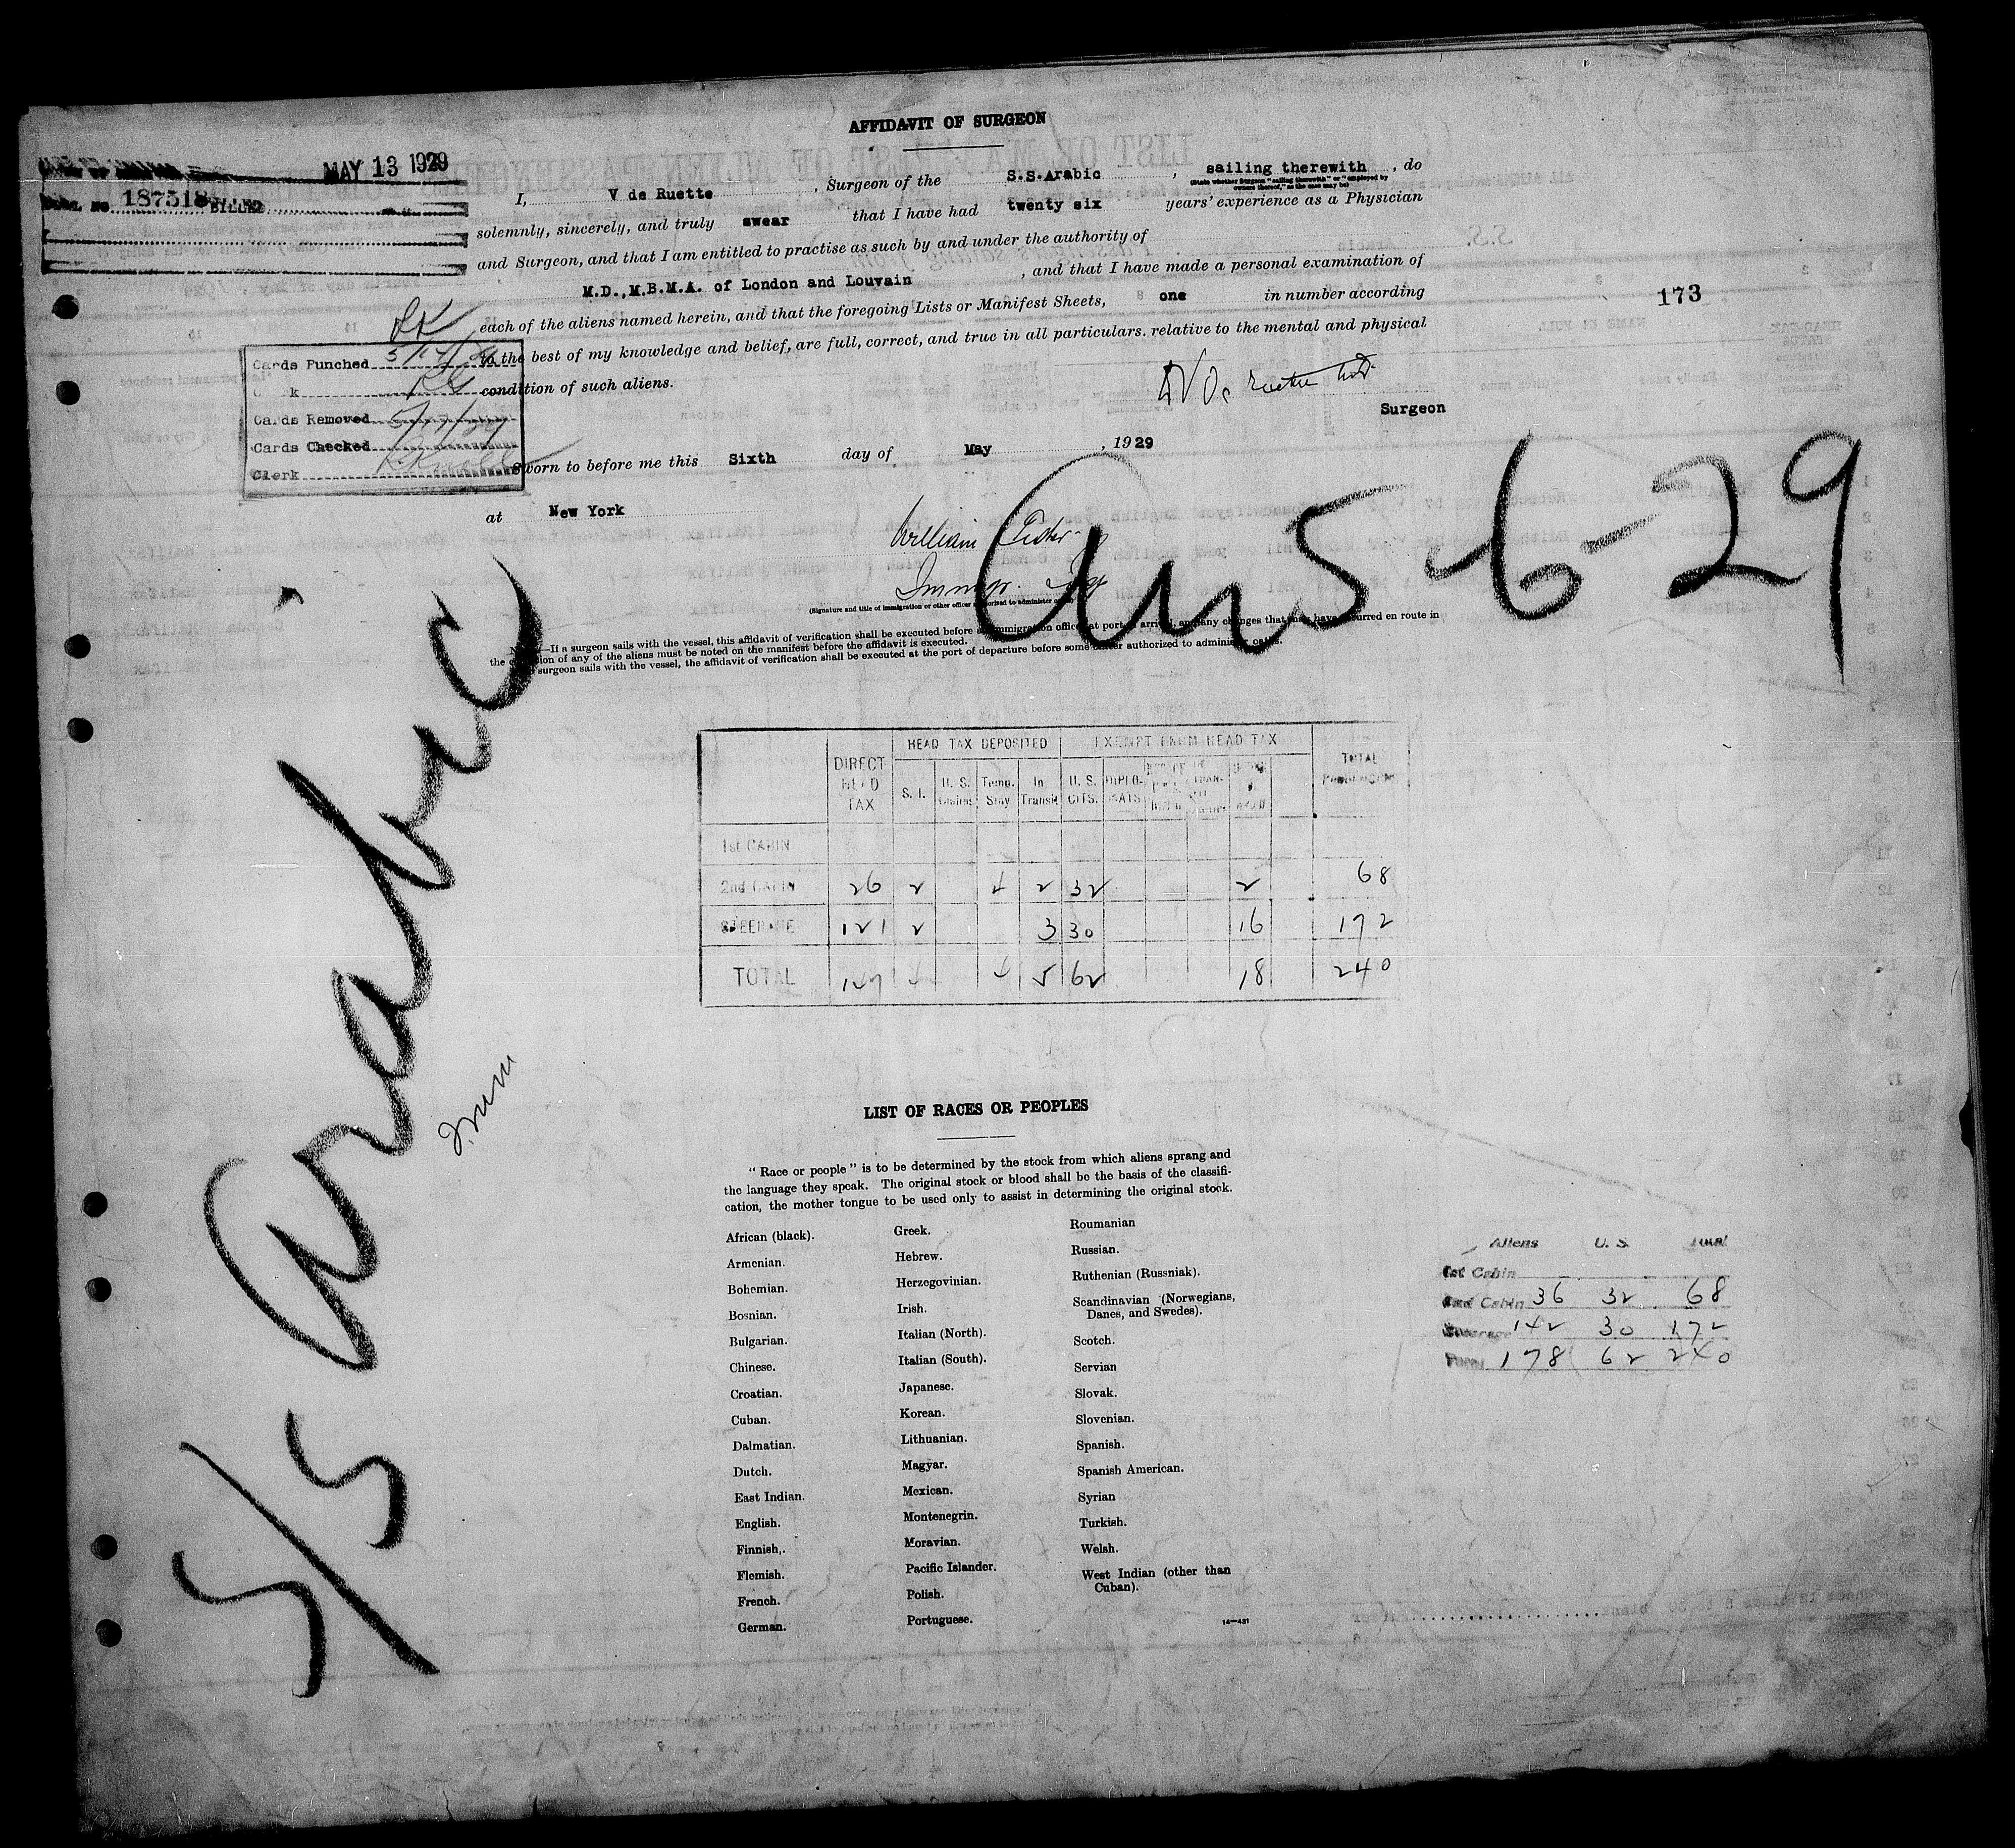 AFFIDAVIT OF SURGEON
MAY 13 1929
187518
I, V de Ruette, Surgeon of the S.S.Arabic, sailing therewith, do
(State whether Surgeon "sailing therewith" or "employed by owners thereof," as the case may be)
solemnly, sincerely, and truly swear that I have had twenty six years' experience as a Physician
and Surgeon, and that I am entitled to practise as such by and under the authority of
M.D.,M.B.M.A. of London and Louvain, and that I have made a personal examination of
each of the aliens named herein, and that the foregoing Lists or Manifest Sheets, one in number according
to the best of my knowledge and belief, are full, correct, and true in all particulars. relative to the mental and physical
condition of such aliens.
173
Cards Punched
Cards Removed
Cards Checked
Clerk
Surgeon
Sworn to before me this Sixth day of May, 1929
at New York
William
5-6-29
(Signature and title of immigration or other officer authorized to administer
—If a surgeon sails with the vessel, this affidavit of verification shall be executed before an immigration officer at port of arrival, and any changes that may have occurred en route in
the condition of any of the aliens must be noted on the manifest before the affidavit is executed.
surgeon sails with the vessel, the affidavit of verification shall be executed at the port of departure before some officer authorized to administer oaths.
S/S Arabic
HEAD TAX DEPOSITED EXEMPT FROM HEAD TAX
DIRECT HEAD TAX S. I. U. S. Temp. Stay In Transit U. S. CITS. DIPLOMATS TOTAL
1st CABIN
2nd CABIN 26 2 4 2 32 2 68
STEERAGE 121 2 3 30 16 172
TOTAL 147 4 4 5 62 18 240
LIST OF RACES OR PEOPLES
"Race or people" is to be determined by the stock from which aliens sprang and
the language they speak. The original stock or blood shall be the basis of the classifi-
cation, the mother tongue to be used only to assist in determining the original stock.
African (black).
Armenian.
Bohemian.
Bosnian.
Bulgarian.
Chinese.
Croatian.
Cuban.
Dalmatian.
Dutch.
East Indian.
English.
Finnish,.
Flemish.
French.
German.
Greek.
Hebrew.
Herzegovinian.
Irish.
Italian (North).
Italian (South).
Japanese.
Korean.
Lithuanian.
Magyar.
Mexican.
Montenegrin.
Moravian.
Pacific Islander.
Polish.
Portuguese.
Roumanian
Russian.
Ruthenian (Russniak).
Scandinavian (Norwegians,
Danes, and Swedes).
Scotch.
Servian
Slovak.
Slovenian.
Spanish.
Spanish American.
Syrian
Turkish.
Welsh.
West Indian (other than
Cuban).
14—481
Aliens U. S. Total
1st Cabin
2nd Cabin 36 32 68
Steerage 142 30 172
Total 178 62 240